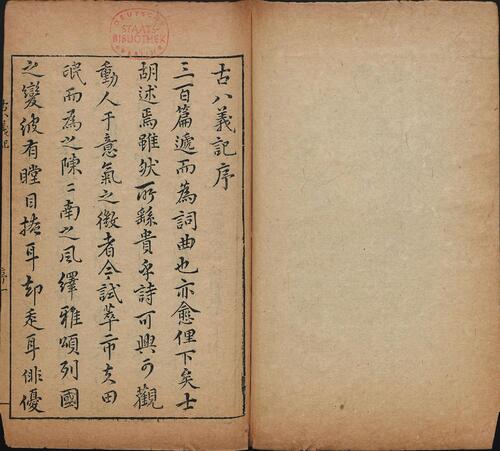 DEUTSCHE
STAATS-
BIBLIOTHEK
BERLIN
古八義記序
三百篇遞而為詞曲也亦愈俚下矣士
胡述焉雖然所繇貴乎詩可興可觀
動人于意氣之微者令試萃一市夫田
氓而為之陳二南之風繹雅頌列國
之變彼有瞠目掩耳却走耳俳優
古八義記
序一